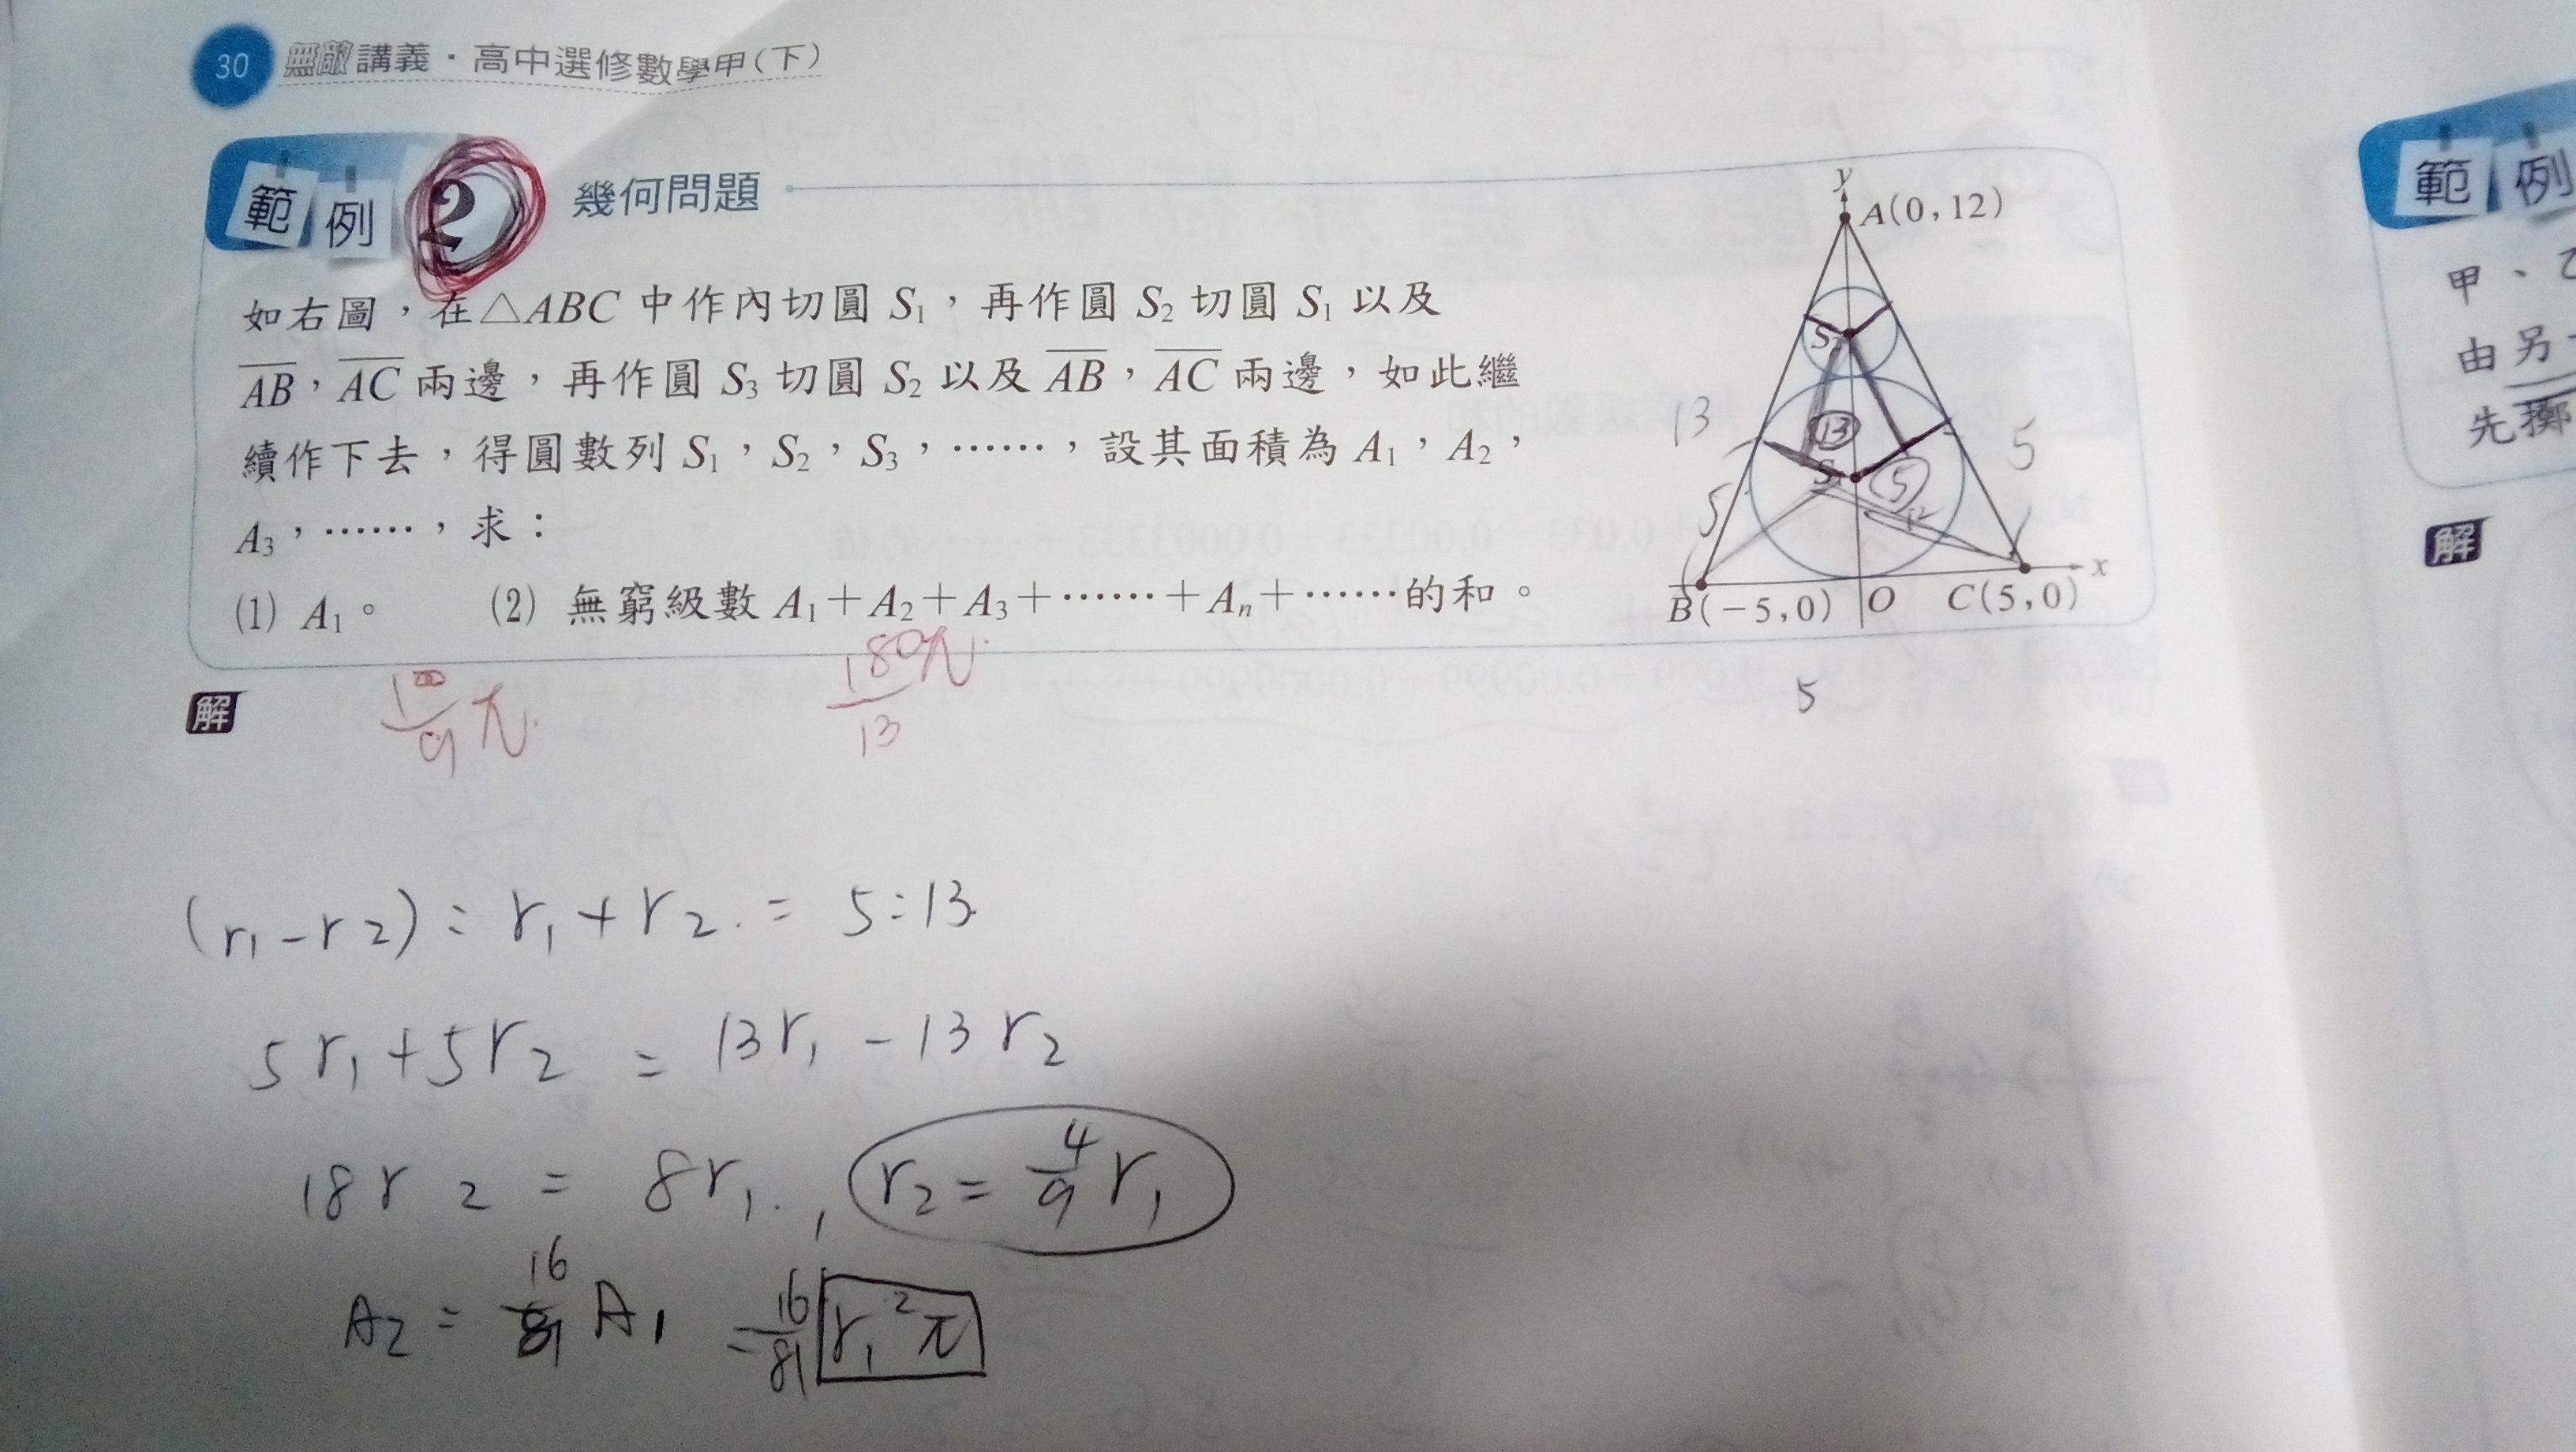 30 無敵講義・高中選修數學甲(下)
範例 2 幾何問題
如右圖,在△ABC 中作內切圓 S₁,再作圓 S₂ 切圓 S₁ 以及
AB,AC 兩邊,再作圓 S₃ 切圓 S₂ 以及 AB,AC 兩邊,如此繼
續作下去,得圓數列 S₁,S₂,S₃,……,設其面積為 A₁,A₂,
A₃,……,求:
(1) A₁。 (2) 無窮級數 A₁+A₂+A₃+……+Aₙ+……的和。
y
A(0,12)
S₂
13
13
5
S₁
5
5
x
B(−5,0) O C(5,0)
5
解
100/9 π
180π/13
(r₁−r₂):r₁+r₂=5:13
5r₁+5r₂=13r₁−13r₂
18r₂=8r₁, r₂=4/9 r₁
A₂=16/81 A₁ =16/81 r₁²π
範例
甲、
由另
先擲
解